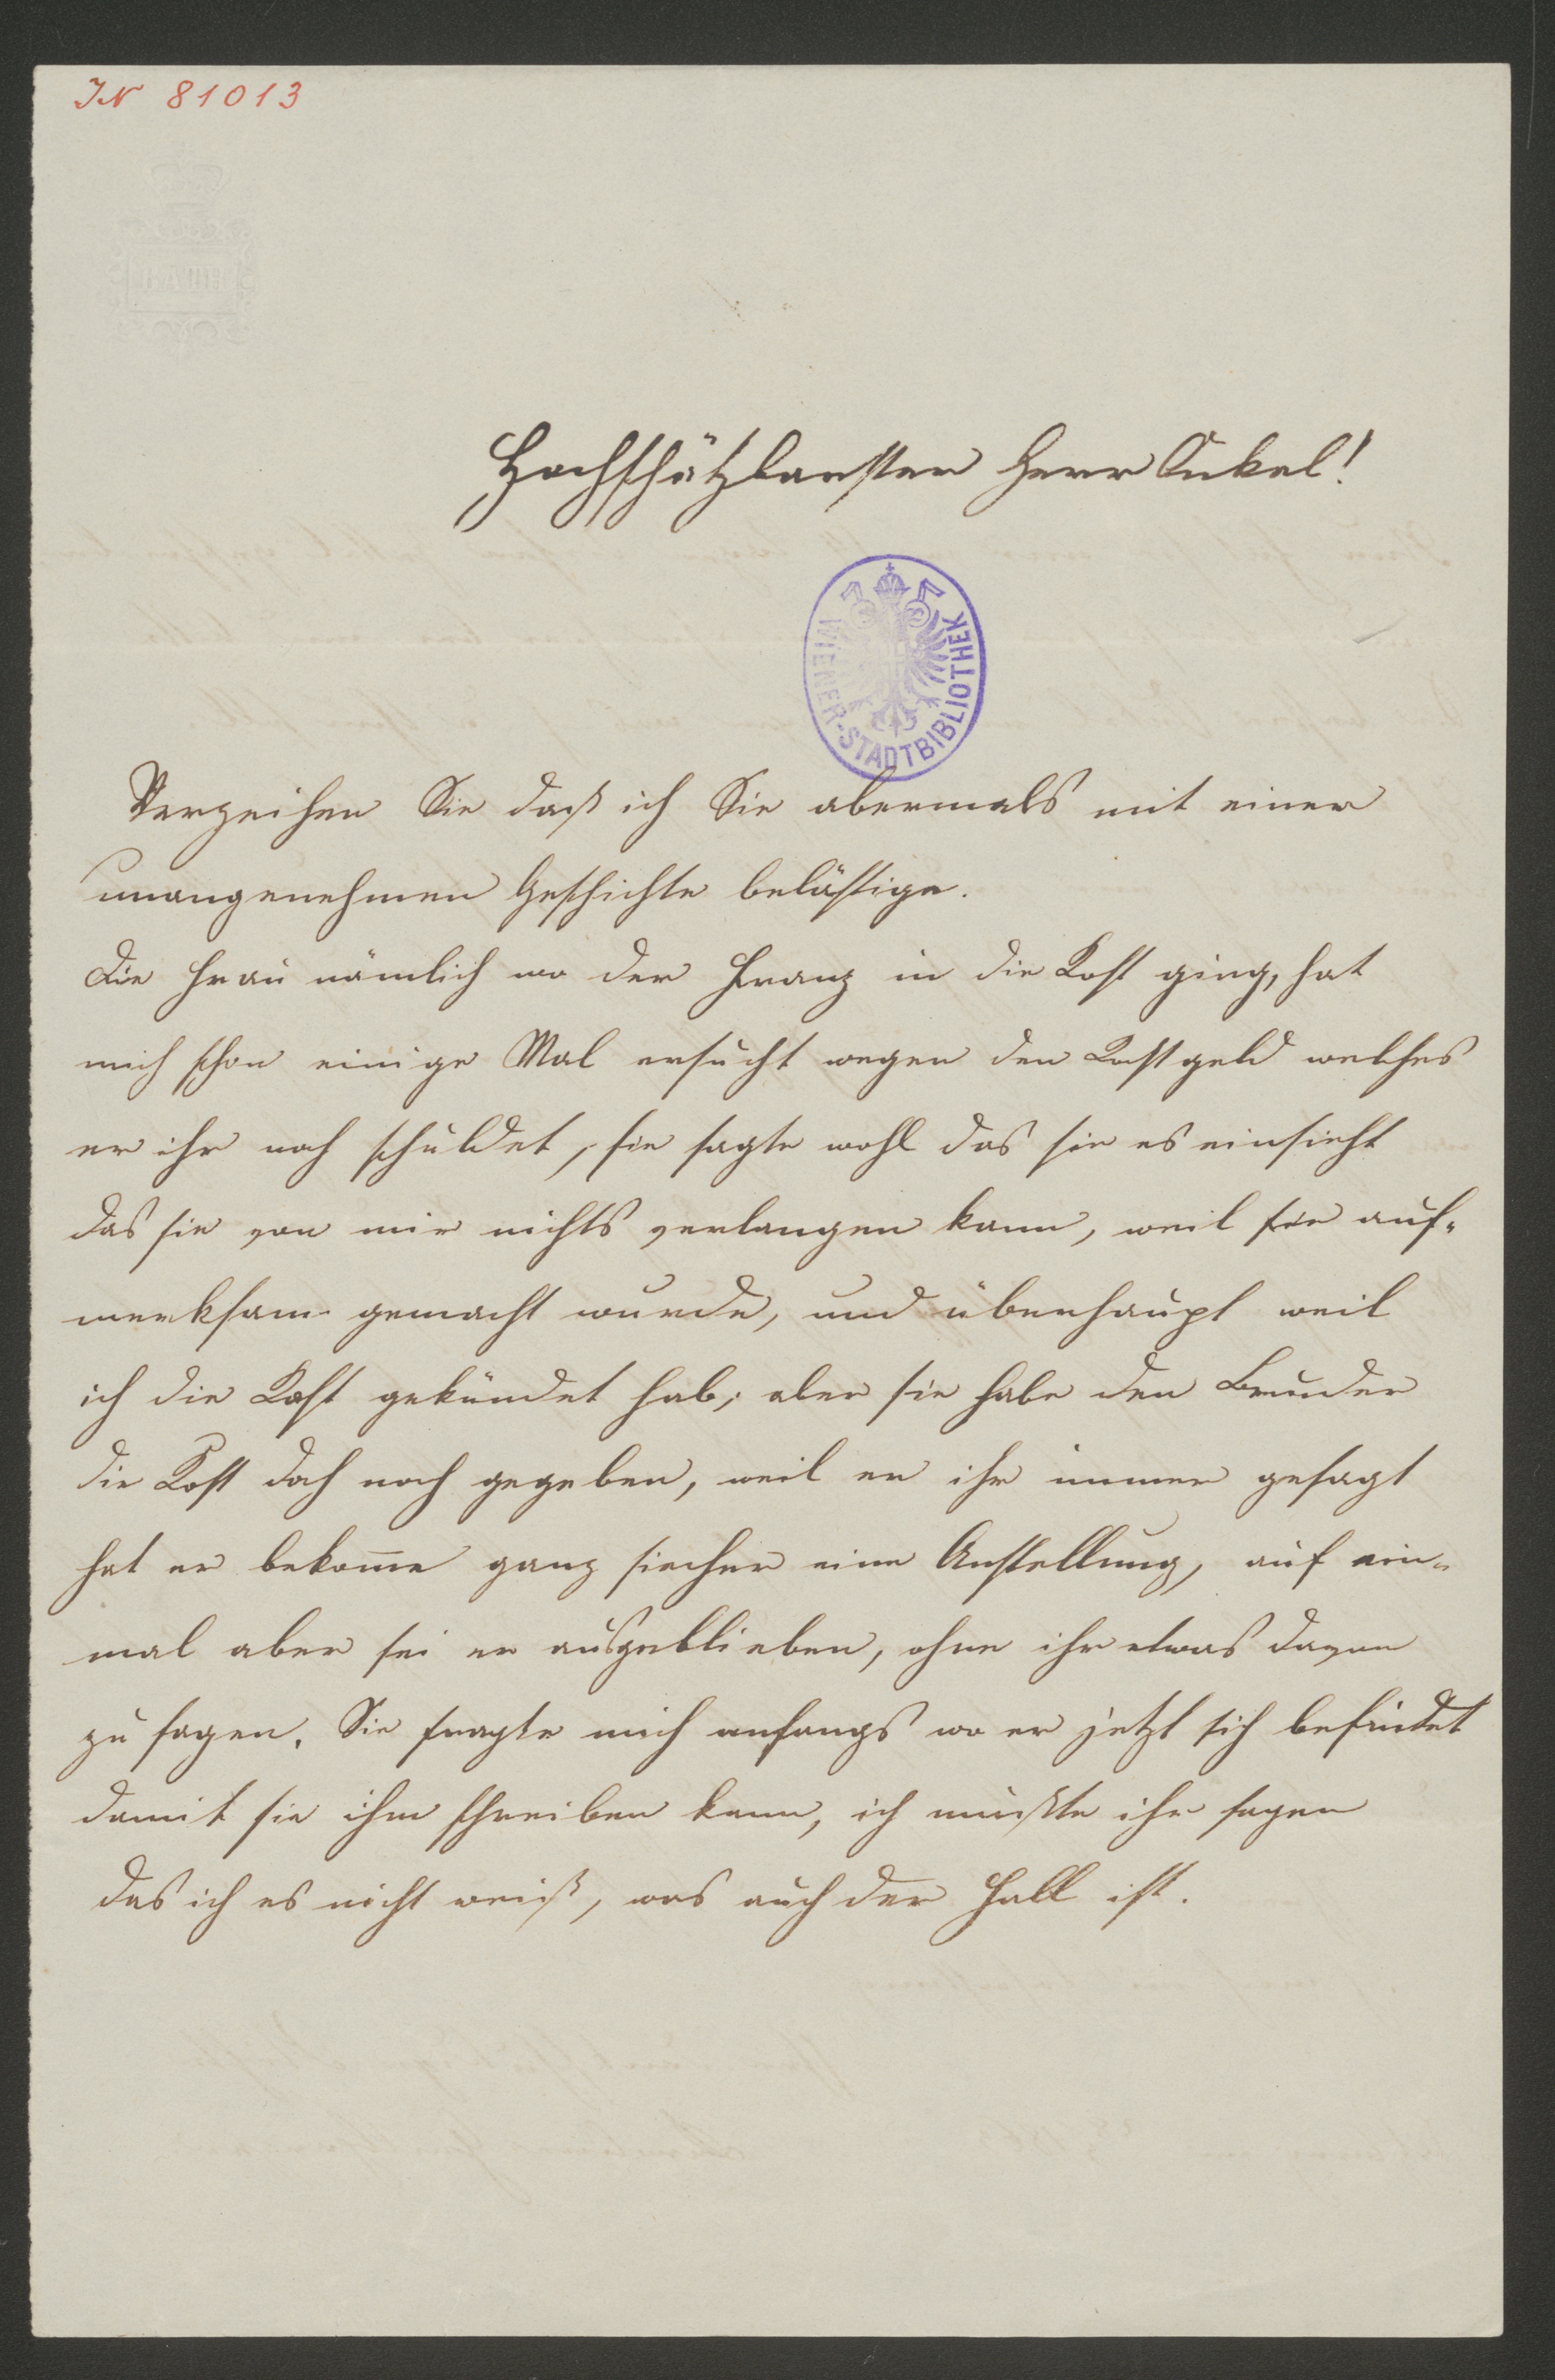 IN 81013
Hochschätzbarster Herr Onkel!
WIENER-STADTBIBLIOTHEK
Verzeihen Sie daß ich Sie abermals mit einer
unangenehmen Geschichte belästige.
Die Frau nämlich wo der Franz in die Kost ging, hat
mich schon einige Mal ersucht wegen den Kostgeld welches
er ihr noch schuldet, sie sagte wohl das sie es einsieht
das sie von mir nichts verlangen kann, weil sie auf-
merksam gemacht wurde, und überhaupt weil
ich die Kost gekündet hab; aber sie habe den Bruder
die Kost doch noch gegeben, weil er ihr immer gesagt
hat er bekom̄e ganz siecher eine Anstellung, auf ein-
mal aber sei er ausgeblieben, ohne ihr etwas davon
zu sagen. Sie fragte mich anfangs wo er jetzt sich befindet
damit sie ihm schreiben kann, ich mußte ihr sagen
das ich es nicht weiß, was auch der Fall ist.